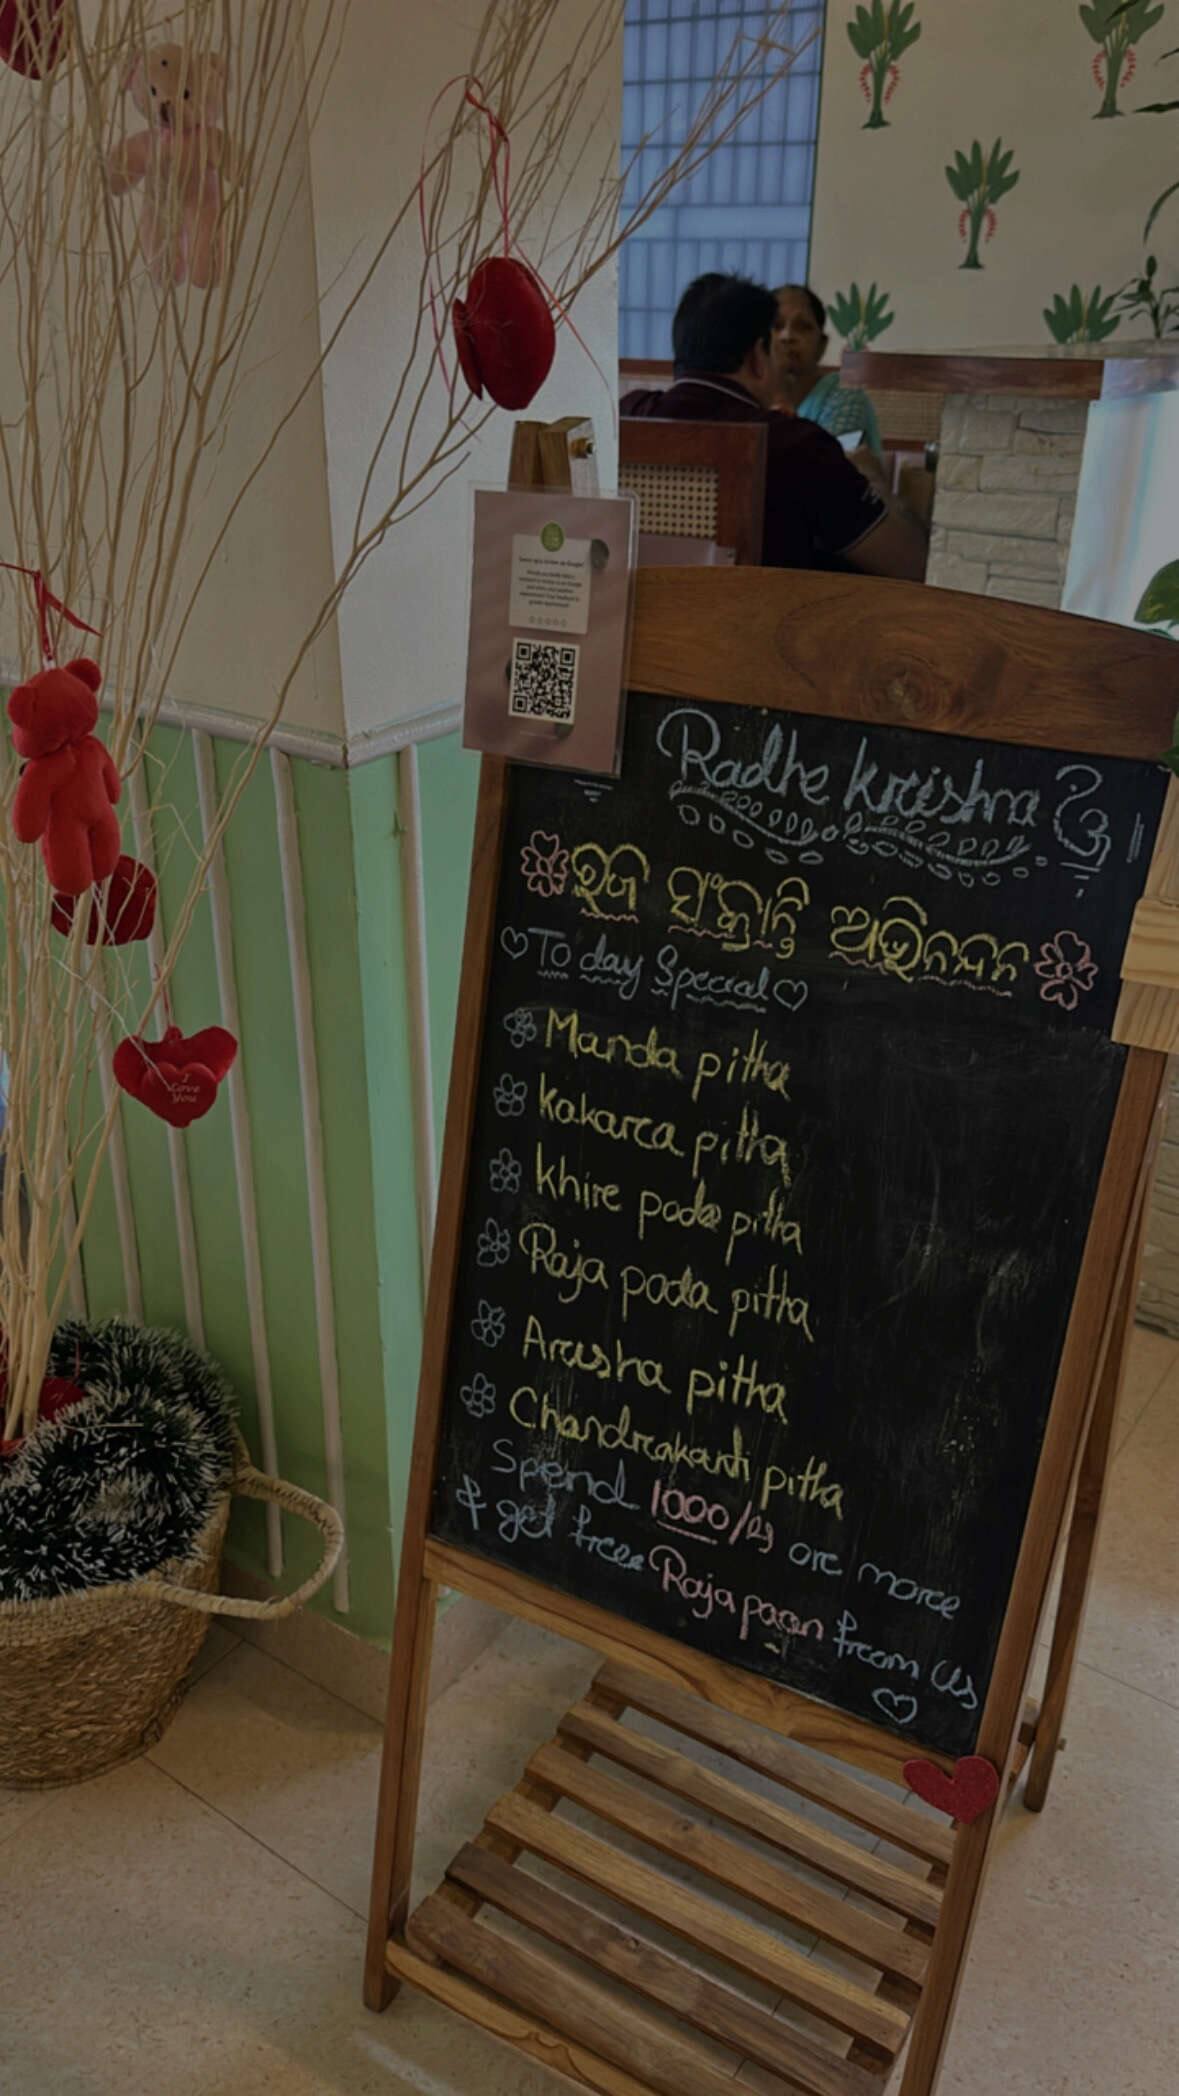 Radhe krishna
ରଜ ସଂକ୍ରାନ୍ତି ଅଭିନନ୍ଦନ
To day Special
Manda pitha
kakarca pitha
khire poda pitha
Raja poda pitha
Arisha pitha
Chandrcakanti pitha
Spend 1000/Rs orc morce
& get frcee Raja paan frcom us
I
Love
You